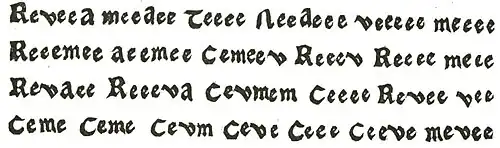 Reveea meeaee Teeee Aeeaeee veeeee meeee
Reeemee aeemee Cemeev Reeev Reeee meee
Revaee Reeeva Cevmem Ceeee Revee vee
Ceme Ceme Cevm Ceve Ceee Ceeve mevee